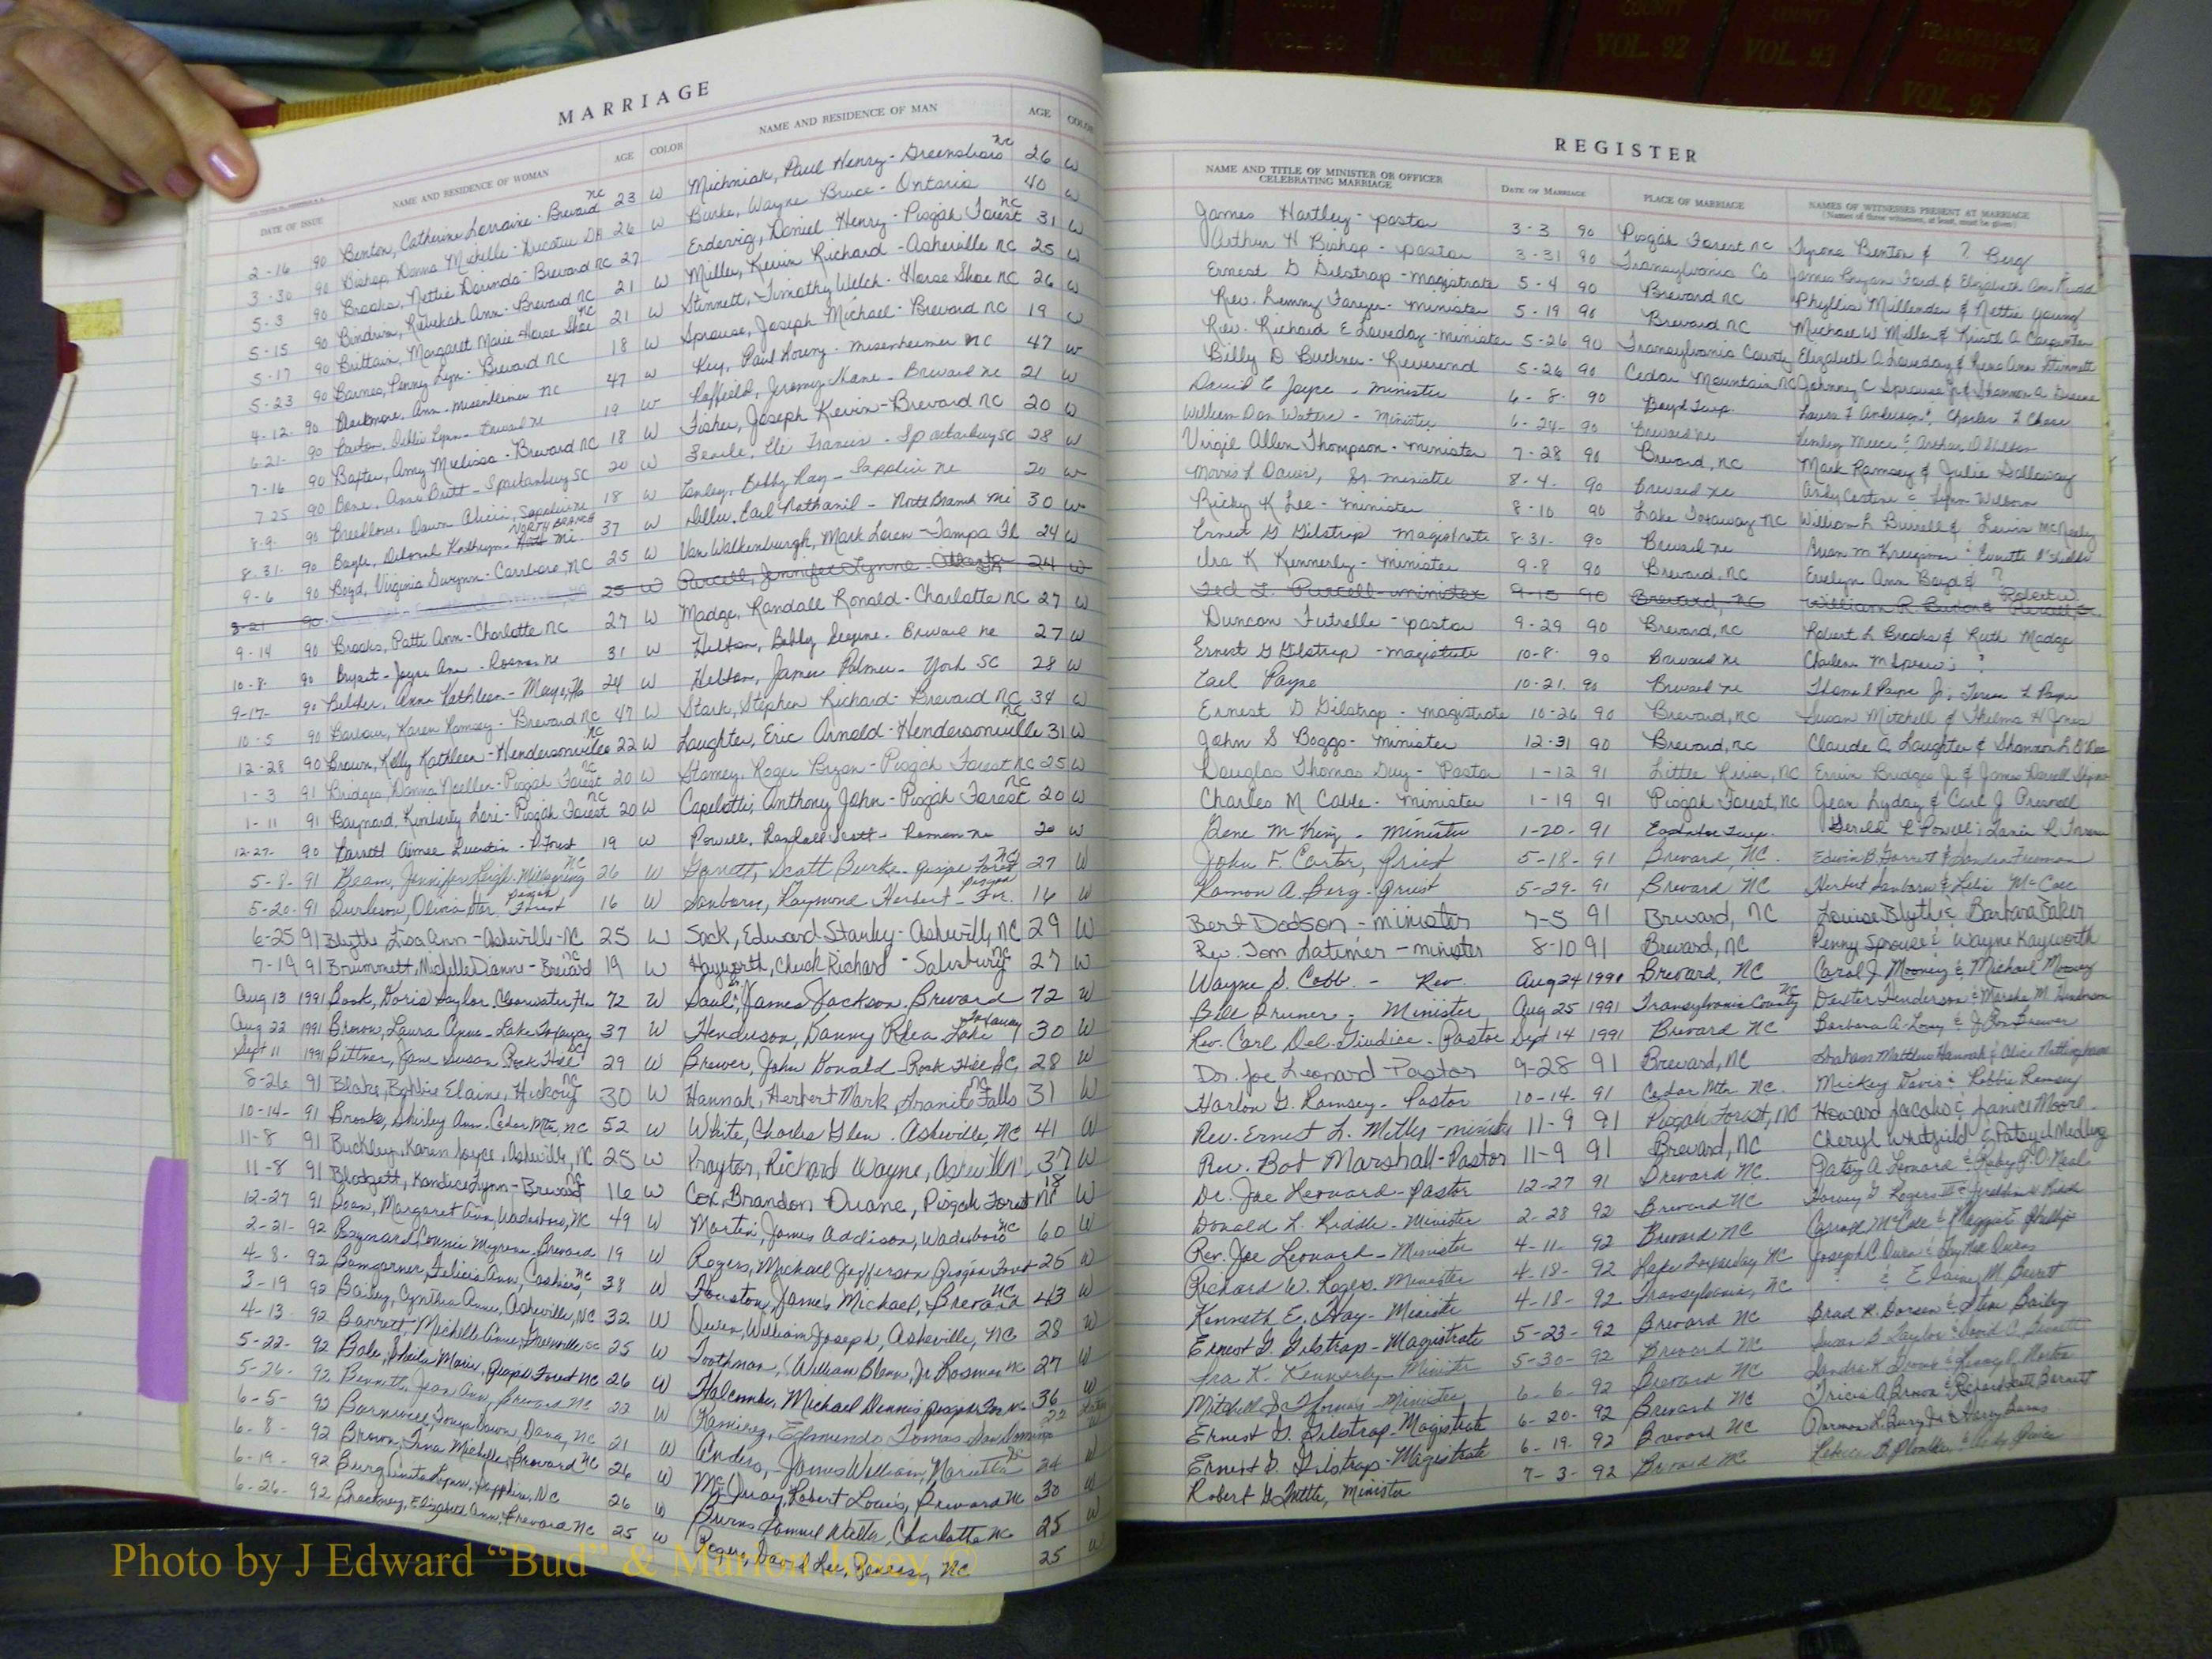 COUNTY COUNTY COUNTY TRANSYLVANIA
VOL. 90 VOL. 91 VOL. 92 VOL. 93 COUNTY
VOL. 95
MARRIAGE
DATE OF ISSUE NAME AND RESIDENCE OF WOMAN AGE COLOR NAME AND RESIDENCE OF MAN AGE COLOR
2-16 90 Benton, Catherine Lorraine - Brevard NC 23 W Michniak, Paul Henry - Greensboro NC 26 W
3-30 90 Bishop, Donna Michelle - 26 W Burke, Wayne Bruce - Ontario 40 W
5-3 90 Brooks, Nettie Dorinda - Brevard NC 27 Erdervig, Daniel Henry - Pisgah Forest NC 31 W
5-15 90 Rebekah Ann - Brevard NC 21 W Miller, Kevin Richard - Asheville NC 25 W
5-17 90 Brittain, Margaret Marie - Horse Shoe NC 21 W Stinnett, Timothy Welch - Horse Shoe NC 26 W
5-23 90 Barnes, Penny Lyn - Brevard NC 18 W Sprouse, Joseph Michael - Brevard NC 19 W
4-12 90 Ann - Misenheimer NC 47 W Key, Paul - Misenheimer NC 47 W
6-21 90 Debbie Lynn - Brevard NC 19 W Jeremy Shane - Brevard NC 21 W
7-16 90 Baxter, Amy Melissa - Brevard NC 18 W Fisher, Joseph Kevin - Brevard NC 20 W
7-25 90 Bone, Anna Britt - Spartanburg SC 20 W Eli Francis - Spartanburg SC 28 W
8-9 90 Breedlove, Dawn Alicia, Sapphire NC 18 W Bobby Ray - Sapphire NC 20 W
8-31 90 Bogle, Deborah Kathryn - North Branch Mi. 37 W Earl Nathanil - North Branch Mi 30 W
9-6 90 Boyd, Virginia Gwynn - Carrboro, NC 25 W Van Valkenburgh, Mark Loren - Tampa Fl 24 W
8-21 90 25 W Purcell, Jennifer Lynne - Atlanta GA 24 W
9-14 90 Brooks, Patti Ann - Charlotte NC 27 W Madge, Randall Ronald - Charlotte NC 27 W
10-8 90 Bryant - Joyce Ann - Rosman NC 31 W Bobby Eugene - Brevard NC 27 W
9-17 90 Anna Kathleen - 24 W James Palmer - York SC 28 W
10-5 90 Barbour, Karen Ramsey - Brevard NC 47 W Stark, Stephen Richard - Brevard NC 34 W
12-28 90 Brown, Kelly Kathleen - Hendersonville NC 22 W Laughter, Eric Arnold - Hendersonville NC 31 W
1-3 91 Bridges, Donna Noellen - Pisgah Forest NC 20 W Stamey, Roger Bryan - Pisgah Forest NC 25 W
1-11 91 Baynard, Kimberly Lori - Pisgah Forest NC 20 W Capelotti, Anthony John - Pisgah Forest NC 20 W
12-27 90 Aimee - P. Forest 19 W Powell, Randall Scott - Rosman NC 20 W
5-8 91 Beam, Jennifer Leigh - Mill Spring NC 26 W Garrett, Scott Burke - Pisgah Forest NC 27 W
5-20 91 Burleson, Olivia Star, Pisgah Forest 16 W Sanborn, Raymond Herbert - Pisgah For. 16 W
6-25 91 Blythe Lisa Ann - Asheville NC 25 W Sock, Edward Stanley - Asheville, NC 29 W
7-19 91 Brummett, Michelle Dianne - Brevard NC 19 W Hayworth, Chuck Richard - Salisbury NC 27 W
Aug 13 1991 Book, Doris Saylor, Clearwater, Fla 72 W Saul, James Jackson, Brevard 72 W
Aug 22 1991 Brown, Laura Anne - Lake Toxaway 37 W Henderson, Danny Rhea Lake Toxaway 30 W
Sept 11 1991 Bittner, Jane Susan Rock Hill SC 29 W Brewer, John Donald - Rock Hill SC 28 W
8-26 91 Blake, Bobbie Elaine, Hickory NC 30 W Hannah, Herbert Mark, Granite Falls NC 31 W
10-14 91 Brooks, Shirley Ann, Cedar Mtn, NC 52 W White, Charles Glen, Asheville, NC 41 W
11-8 91 Buckley, Karen Joyce, Asheville, NC 25 W Praytor, Richard Wayne, Asheville 37 W
11-8 91 Blodgett, Kandice Lynn - Brevard NC 16 W Cox, Brandon Duane, Pisgah Forest NC 18 W
12-27 91 Bean, Margaret Ann, Wadesboro, NC 49 W Martin, James Addison, Wadesboro NC 60 W
2-21 92 Baynard, Connie Myrene, Brevard 19 W Rogers, Michael Jefferson Pisgah Forest 25 W
4-8 92 Bumgarner, Felicia Ann, Cashiers, NC 38 W Houston, James Michael, Brevard NC 43 W
3-19 92 Bailey, Cynthia Anne, Asheville, NC 32 W Owen, William Joseph, Asheville, NC 28 W
4-13 92 Barrett, Michelle Anne, Greenville SC 25 W Toothman, William Glenn, Jr Rosman NC 27 W
5-22 92 Bale, Sheila Marie, Pisgah Forest NC 26 W Holcombe, Michael Dennis Pisgah For NC 36 W
5-26 92 Bennett, Jean Ann, Brevard NC 22 W Ramirez, Edmundo Tomas 22
6-5 92 Barnwell, Tonya Dawn, Dana, NC 21 W Anders, James William, Marietta SC 24 W
6-8 92 Brown, Tina Michelle, Brevard NC 26 W McQuay, Robert Louis, Brevard NC 30 W
6-19 92 Burg, Anita Logan, Sapphire, NC 26 W Burns Samuel Walter, Charlotte NC 25 W
6-26 92 Brackney, Elizabeth Ann, Brevard NC 25 W Rogers, David Lee, NC 25 W
REGISTER
NAME AND TITLE OF MINISTER OR OFFICER CELEBRATING MARRIAGE DATE OF MARRIAGE PLACE OF MARRIAGE NAMES OF WITNESSES PRESENT AT MARRIAGE
(Names of three witnesses, at least, must be given)
James Hartley - pastor 3-3 90 Pisgah Forest NC Tyrone Benton & ? Berg
Arthur H Bishop - pastor 3-31 90 Transylvania Co James Bryan Ford & Elizabeth Ann
Ernest G Gilstrap - magistrate 5-4 90 Brevard NC Phyllis Millender & Nettie Young
Rev. Lenny - minister 5-19 90 Brevard NC Michael W Miller & Kristi A Carpenter
Rev. Richard E Loveday - minister 5-26 90 Transylvania County Elizabeth A Loveday & Rena Ann Stinnett
Billy D Buckner - Reverend 5-26 90 Cedar Mountain NC Johnny C Sprouse Jr & Shannon A
David E Joyce - minister 6-8 90 Boyd Twp. Laura T Anderson & Charles L Chase
William Dan Waters - Minister 6-24 90 Brevard NC
Virgil Allen Thompson - minister 7-28 90 Brevard, NC Mark Ramsey & Julie Galloway
Morris L Davis, Sr minister 8-4 90 Brevard NC
Ricky K Lee - minister 8-10 90 Lake Toxaway NC William L Burrell & Lewis McNeely
Ernest G Gilstrap magistrate 8-31 90 Brevard NC
Ira K Kennerly - minister 9-8 90 Brevard, NC Evelyn Ann Boyd & ?
Ted L. Purcell - minister 9-15 90 Brevard, NC William R Robert W. Purcell
Duncan Futrelle - pastor 9-29 90 Brevard, NC Robert L Brooks & Ruth Madge
Ernest G Gilstrap - magistrate 10-8 90 Brevard NC
Earl Payne 10-21 90 Brevard NC Thomas Payne Jr; Teresa L Payne
Ernest G Gilstrap - magistrate 10-26 90 Brevard, NC Susan Mitchell & Thelma H Jones
John S Boggs - minister 12-31 90 Brevard, NC Claude A. Laughter & Shannon L
Douglas Thomas Guy - Pastor 1-12 91 Little River, NC Ervin Bridges Jr & James Darrell
Charles M Cable - minister 1-19 91 Pisgah Forest, NC Jean Lyday & Carl J Presnell
Gene M King - Minister 1-20 91 Eastatoe Twp.
John F. Carter, Priest 5-18 91 Brevard, NC. Edwin B. Garrett & Sandra Freeman
Ramon A. Berg - Priest 5-29 91 Brevard NC Herbert Sanborn & Lelia McCall
Bert Dodson - minister 7-5 91 Brevard, NC Louise Blythe & Barbara Baker
Rev. Tom Latimer - minister 8-10 91 Brevard, NC Penny Sprouse & Wayne Hayworth
Wayne S. Cobb - Rev. Aug 24 1991 Brevard, NC Carol J. Mooney & Michael Mooney
Bill Pruner - Minister Aug 25 1991 Transylvania County NC Dexter Henderson & Marsha M Henderson
Rev. Carl Del Giudice - Pastor Sept 14 1991 Brevard NC Barbara A. Long & J. Brewer
Dr. Joe Leonard - Pastor 9-28 91 Brevard, NC Graham Matthew Hannah & Alice Nottingham
Harlon G. Ramsey - Pastor 10-14 91 Cedar Mtn NC. Mickey Davis & Robbie Ramsey
Rev. Ernest L. Mills - minister 11-9 91 Pisgah Forest, NC Howard Jacobs & Janice Moore
Rev. Bob Marshall - Pastor 11-9 91 Brevard, NC Cheryl Whitfield & Patsy Medling
Dr. Joe Leonard - Pastor 12-27 91 Brevard NC. Patsy A. Leonard & Ruby P. O'Neal
Donald L. Riddle - Minister 2-28 92 Brevard NC Harvey G. Rogers & Riddle
Rev. Joe Leonard - Minister 4-11 92 Brevard NC Carroll McCall & Phillips
Richard W. Rogers - Minister 4-18 92 Lake Toxaway NC Joseph C. Owen & Owens
Kenneth E. Gray - Minister 4-18 92 Transylvania, NC ? & Elaine M. Barrett
Ernest G. Gilstrap - Magistrate 5-23 92 Brevard NC Brad R. Dorsen & Steve Bailey
Ira K. Kennerly - Minister 5-30 92 Brevard NC Susan B Taylor & David C Bennett
Mitchell S. Thomas - Minister 6-6 92 Brevard NC
Ernest G. Gilstrap - Magistrate 6-20 92 Brevard NC Tricia A Brown & Richard Scott Barnett
Ernest G. Gilstrap - Magistrate 6-19 92 Brevard NC
Robert G Tuttle, Minister 7-3 92 Brevard NC
Photo by J Edward “Bud” & Marion Josey ©